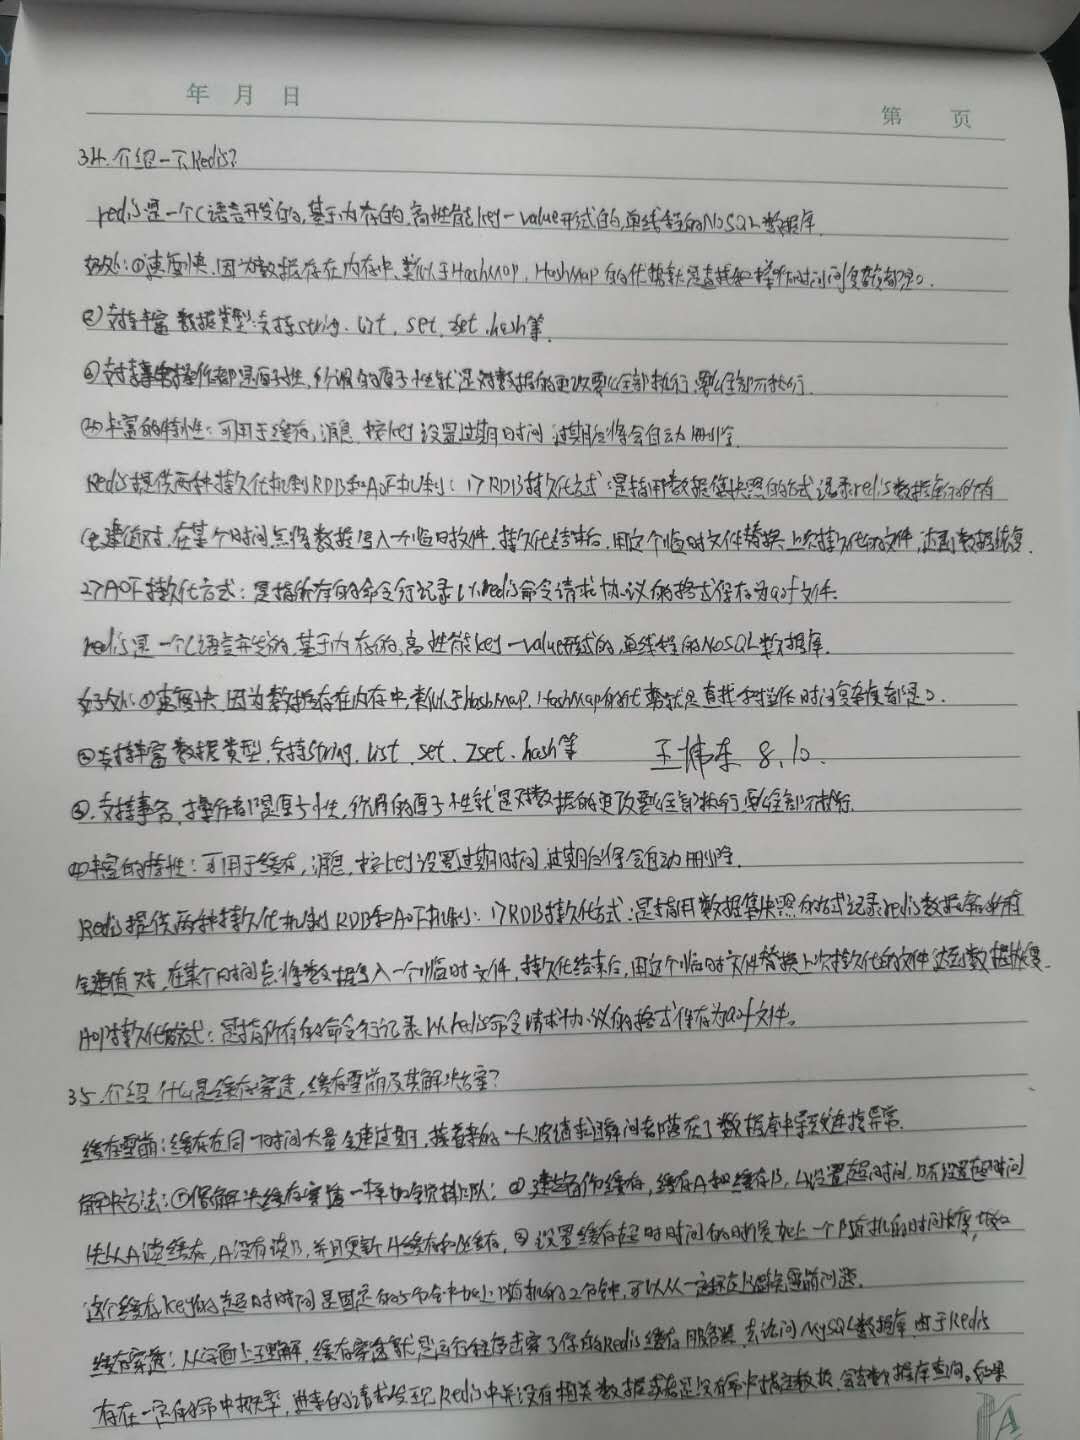 年 月 日
第 页
34.介绍一下Redis?
redis是一个C语言开发的,基于内存的,高性能key-value形式的,单线程的NoSQL数据库.
好处:①速度快,因为数据存在内存中,类似于HashMap,HashMap的优势就是查找和操作时间复杂度都是O.
②支持丰富数据类型:支持string、list、set、zset、hash等.
③支持事务操作都是原子性,所谓的原子性就是对数据的更改要么全部执行,要么全部不执行.
④丰富的特性:可用于缓存,消息,按key设置过期时间,过期后将会自动删除.
Redis提供两种持久化机制RDB和AOF机制:1>RDB持久化方式:是指用数据集快照的方式记录redis数据库的所有
键值对,在某个时间点将数据写入一个临时文件,持久化结束后,用这个临时文件替换上次持久化的文件,达到数据恢复.
2>AOF持久化方式:是指所有的命令行记录以redis命令请求协议的格式保存为aof文件.
redis是一个C语言开发的,基于内存的,高性能key-value形式的,单线程的NoSQL数据库.
好处:①速度快,因为数据存在内存中,类似于HashMap,HashMap的优势就是查找和操作时间复杂度都是O.
②支持丰富数据类型,支持string、list、set、zset、hash等 王炜东 8.10.
③.支持事务,操作都是原子性,所谓的原子性就是对数据的更改要么全部执行,要么全部不执行.
④丰富的特性:可用于缓存,消息,按key设置过期时间,过期后将会自动删除.
Redis提供两种持久化机制RDB和AOF机制:1>RDB持久化方式:是指用数据集快照的方式记录redis数据库的所有
键值对,在某个时间点将数据写入一个临时文件,持久化结束后,用这个临时文件替换上次持久化的文件达到数据恢复.
AOF持久化方式:是指所有的命令行记录以redis命令请求协议的格式保存为aof文件。
35.介绍什么是缓存穿透,缓存雪崩及其解决方案?
缓存雪崩:缓存在同一时间大量键过期,接着来的一大波请求瞬间都落在了数据库中导致连接异常.
解决方法:①像解决缓存穿透一样加锁排队;②建立备份缓存,缓存A和缓存B,A设置超时时间,B不设置超时时间
先从A读缓存,A没有读B,并且更新A缓存和B缓存,③设置缓存超时时间的时候加上一个随机的时间长度,比如
这个缓存key的超时时间是固定的5分钟加上随机的2分钟,可以从一定程度上避免雪崩问题.
缓存穿透:从字面上理解,缓存穿透就是运行程序击穿了你的Redis缓存服务器,去访问MySQL数据库,由于Redis
存在一定的命中概率,进来的请求发现Redis中并没有相关数据或者是没有命中指定数据,会去数据库查询。如果